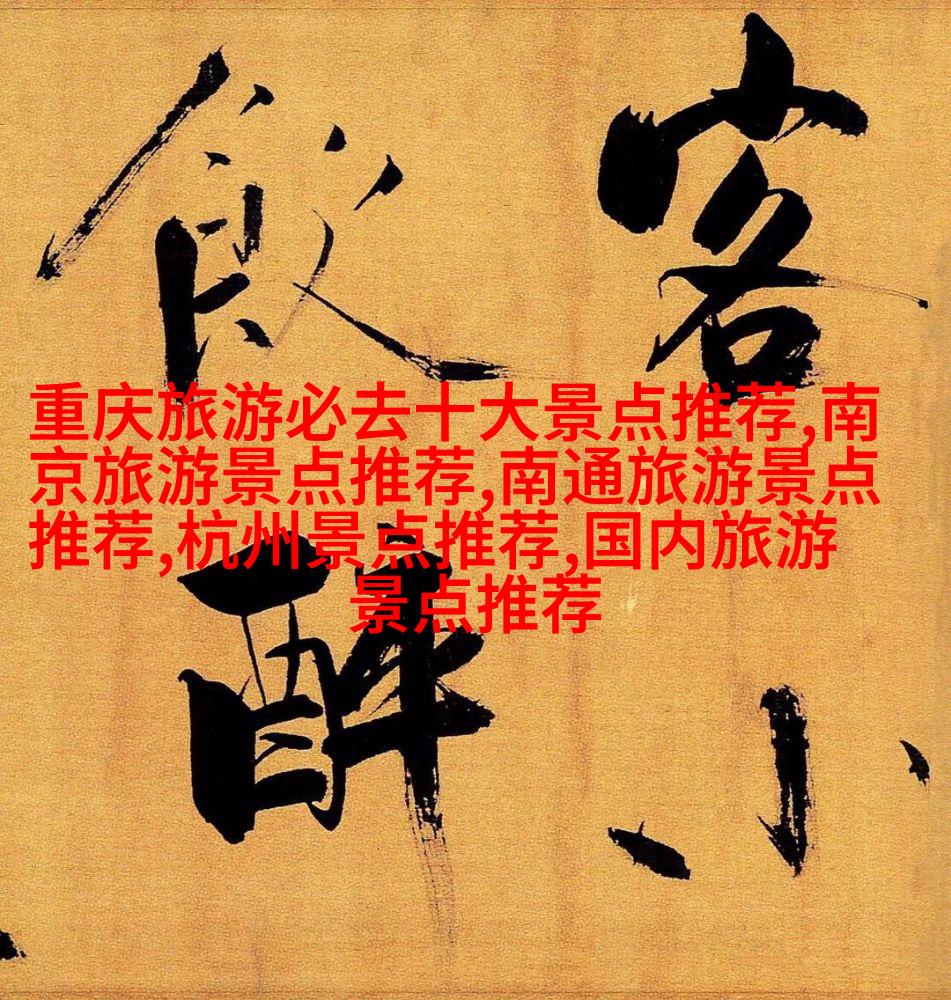 客小
飲醉
重庆旅游必去十大景点推荐,南
京旅游景点推荐,南通旅游景点
推荐,杭州景点推荐,国内旅游
景点推荐